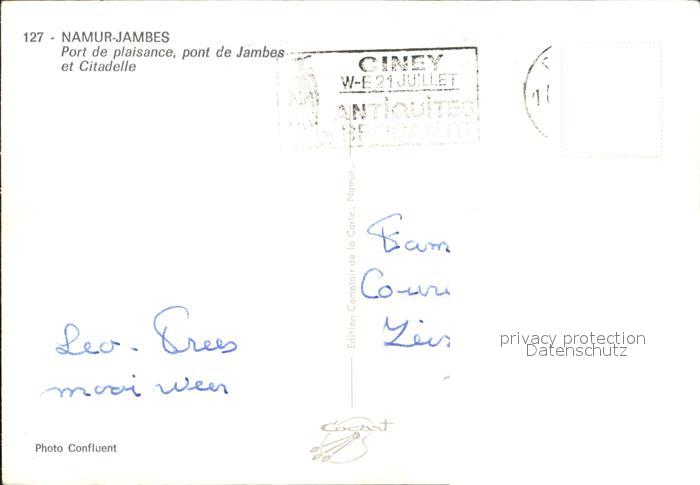 127 - NAMUR-JAMBES
Port de plaisance, pont de Jambes
et Citadelle
CINEY
W-E 21 JUILLET
ANTIQUITES
BROCANTE
Edition Comptoir de la Carte, Namur.
Fam
Leo - Trees
mooi weer
privacy protection
Datenschutz
Cocart
Photo Confluent